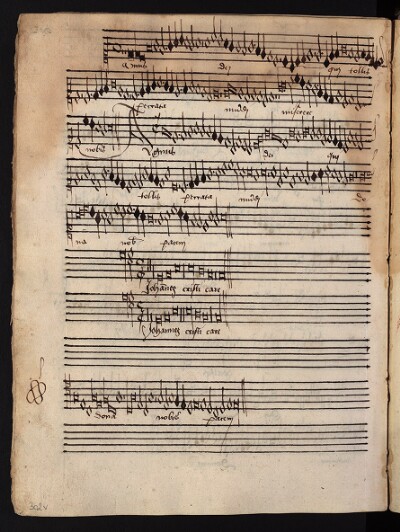 dei qui tollis
peccata mundi miserere
nobis Agnus dei qui
tollis peccata mundi do
na nob pacem
Johannes cristi care
Johannes cristi care
dona nobis pacem